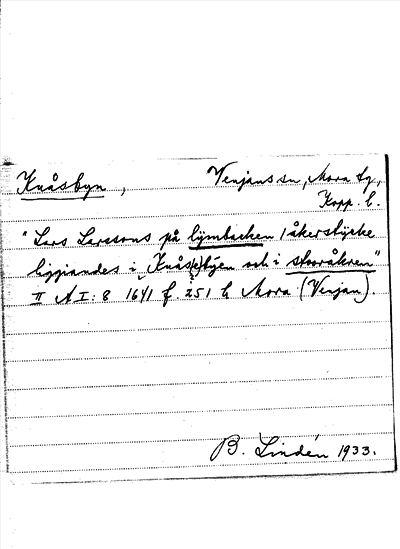 Knåsbyn, Venjans sn, Mora tg,
Kopp. l.
"Lars Larssons på lymbacken / åkerstycke
liggiandes i Knås(e)byen och i storåkren"
II A I: 8 1641 f. 251 b Mora (Venjan).
B. Lindén 1933.